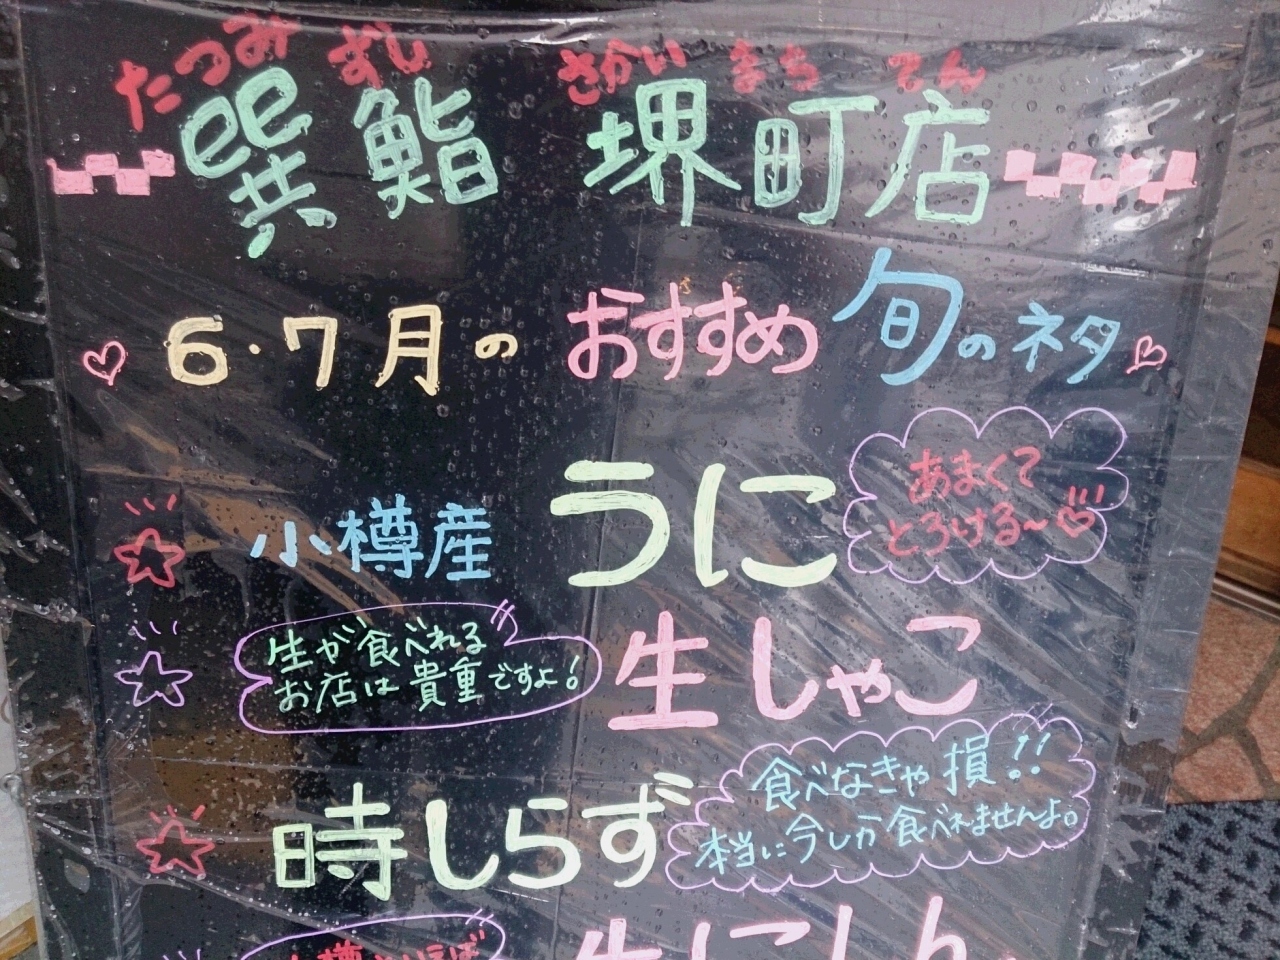 たつみ ずし さかい まち てん
巽鮨 堺町店
6・7月の おすすめ 旬のネタ
小樽産 うに
あまくて
とろける～♡
生が食べれる
お店は貴重ですよ!
生しゃこ
時しらず
食べなきゃ損!!
本当に今しか食べれませんよ。
生にしん